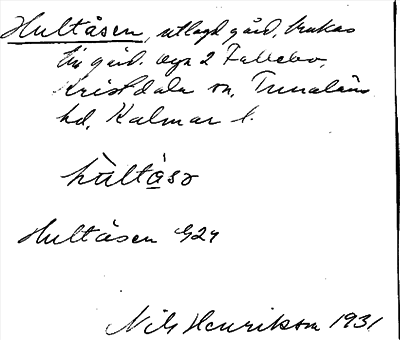 Hultåsen, utlagd gård, brukas
till gård. nyn 2 Fallebo,
Kristdala sn, Tunaläns
hd, Kalmar l.
hùltåsɔ
Hultåsen G24
Nils Henrikson 1931